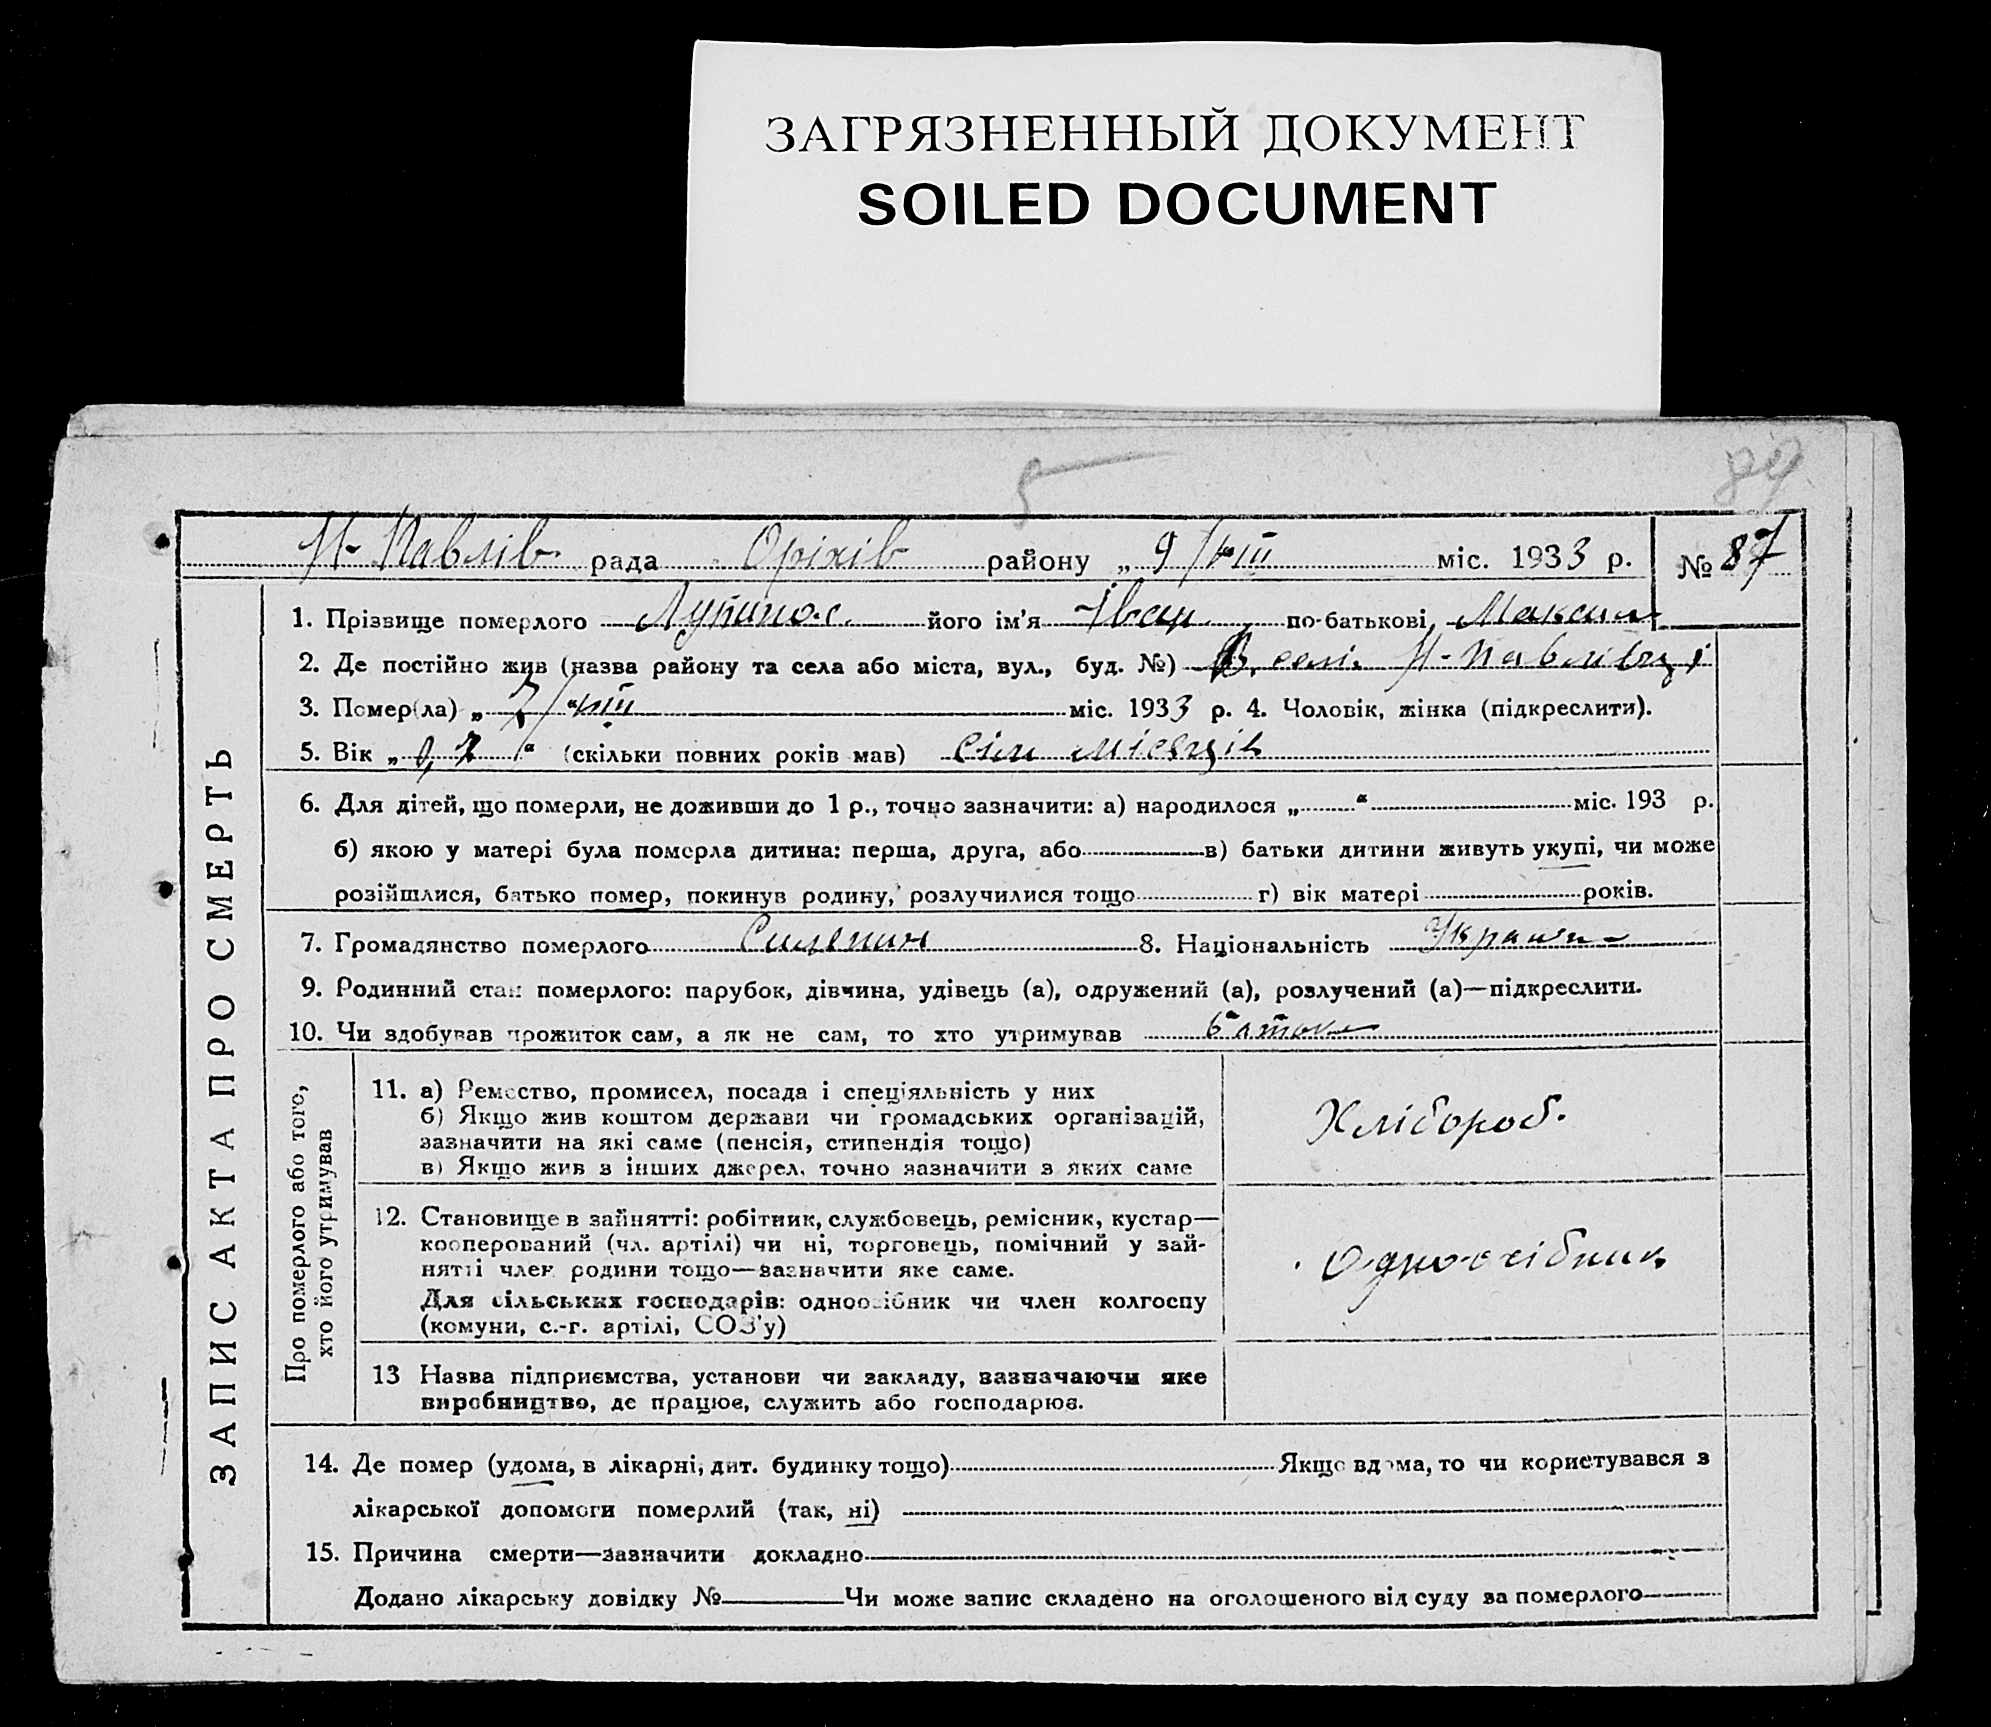 ЗАГРЯЗНЕННЫЙ ДОКУМЕНТ
SOILED DOCUMENT
5
Н-Павлів. рада Оріхів району „ 9/VIII міс. 1933 р. № 87
ЗАПИС АКТА ПРО СМЕРТЬ
1. Прізвище померлого Лупинос. його ім'я Іван по-батькові Максим
2. Де постійно жив (назва району та села або міста, вул., буд. №) В селі Н-Павлівці
3. Помер(ла) „ 7/VIII міс. 1933 р. 4. Чоловік, жінка (підкреслити).
5. Вік „ 0,7 “ (скільки повних років мав) сім місяців
6. Для дітей, що померли, не доживши до 1 р., точно зазначити: а) народилося „ “ міс. 193 р.
б) якою у матері була померла дитина: перша, друга, або в) батьки дитини живуть укупі, чи може
розійшлися, батько помер, покинув родину, розлучилися тощо г) вік матері років.
7. Громадянство померлого 8. Національність
9. Родинний стан померлого: парубок, дівчина, удівець (а), одружений (а), розлучений (а)—підкреслити.
10. Чи здобував прожиток сам, а як не сам, то хто утримував батьки
Про померлого або того,
хто його утримував
11. а) Ремество, промисел, посада і спеціяльність у них
б) Якщо жив коштом держави чи громадських організацій,
зазначити на які саме (пенсія, стипендія тощо)
в) Якщо жив з інших джерел, точно зазначити з яких саме
Хлібороб.
12. Становище в зайнятті: робітник, службовець, ремісник, кустар—
кооперований (чл. артілі) чи ні, торговець, помічний у зай-
нятті член родини тощо—зазначити яке саме.
Для сільських господарів: одноосібник чи член колгоспу
(комуни, с.-г. артілі, СОЗ'у)
Одноосібник
13 Назва підприємства, установи чи закладу, зазначаючи яке
виробництво, де працює, служить або господарює.
14. Де помер (удома, в лікарні, дит. будинку тощо) Якщо вдома, то чи користувався з
лікарської допомоги померлий (так, ні)
15. Причина смерти—зазначити докладно
Додано лікарську довідку № Чи може запис складено на оголошеного від суду за померлого